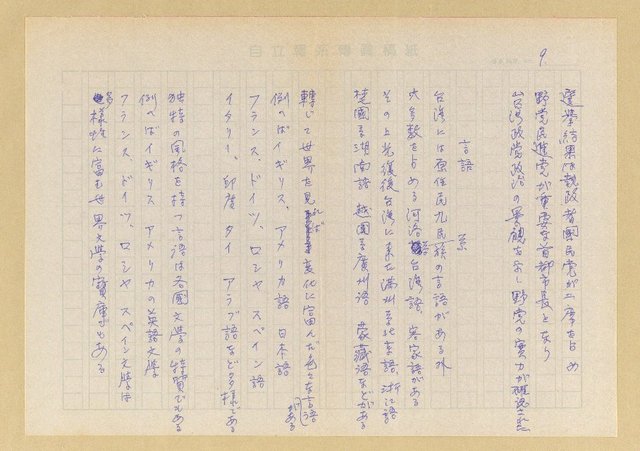 9.
選挙結果は執政者国民党が一席を占め
野党民進党が重要な首都市長となり
台湾政党政治の景観を示し野党の実力が確認された
言語系
台湾には原住民九民族の言語がある外
大多数を占める河洛台湾語、客家語がある
その上光復後台湾に来た満州系北京語、浙江語
楚国系湖南語 越国系廣州語 蒙蔵語などがある
転じて世界を見れば変化に富んだ色々な言語がある
例へばイギリス、アメリカ語 日本語
フランス、ドイツ、ロシヤ スペイン語
イタリー、印度 タイ アラブ語など多様である
独特の風格を持つ言語は各国文学の特質でもある
例へばイギリス アメリカの英語文学
フランス、ドイツ、ロシヤ スペイン文学は
多様性に富む世界文学の宝庫でもある